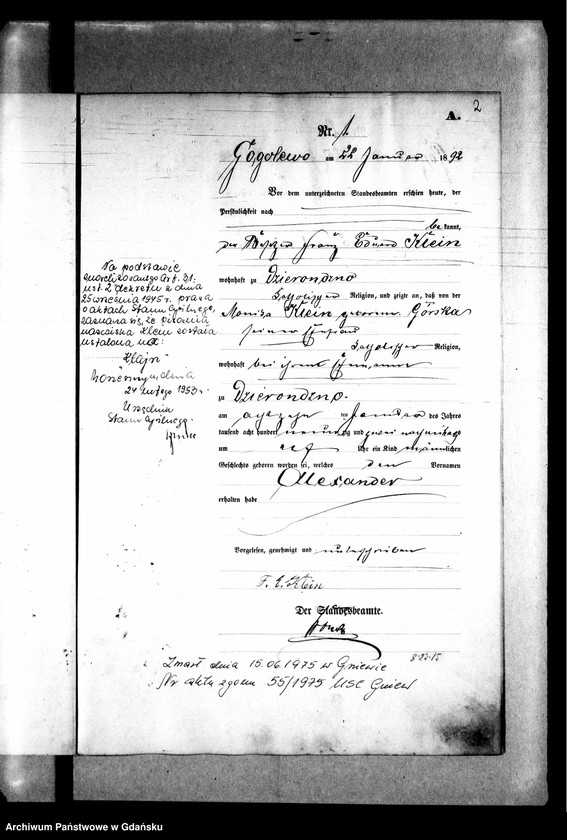 2
A.
Nr. 1.
Gogolewo am 22 Januar 1892
Vor dem unterzeichneten Standesbeamten erschien heute, der
Persönlichkeit nach
be kannt,
der Besitzer Franz Eduard Klein
wohnhaft zu Dzierondzno
katholischer Religion, und zeigte an, daß von der
Monika Klein geborene Górska
seiner Ehefrau
katholischer Religion,
wohnhaft bei ihrem Ehemanne
zu Dzierondzno.
am achtzehn ten Januar des Jahres
tausend acht hundert neunzig und zwei nachmittags
um elf Uhr ein Kind männlichen
Geschlechts geboren worden sei, welches den Vornamen
Alexander
erhalten habe
Vorgelesen, genehmigt und unterschrieben
F. E. Klein
Der Standesbeamte.
Na podstawie
znowelizowanego art. 31.
ust. 2 dekretu z dnia
25 września 1945 r. prawa
o aktach Stanu Cywilnego,
zaznacza się, że pisownia
nazwiska Klein została
ustalona na:
"Klajn"
dnia
24 lutego 1953 r.
Urzędnik
Stanu Cywilnego:
Zmarł dnia 15.06.1975 w Gniewie
Nr aktu zgonu 55/1975 USC Gniew
Archiwum Państwowe w Gdańsku